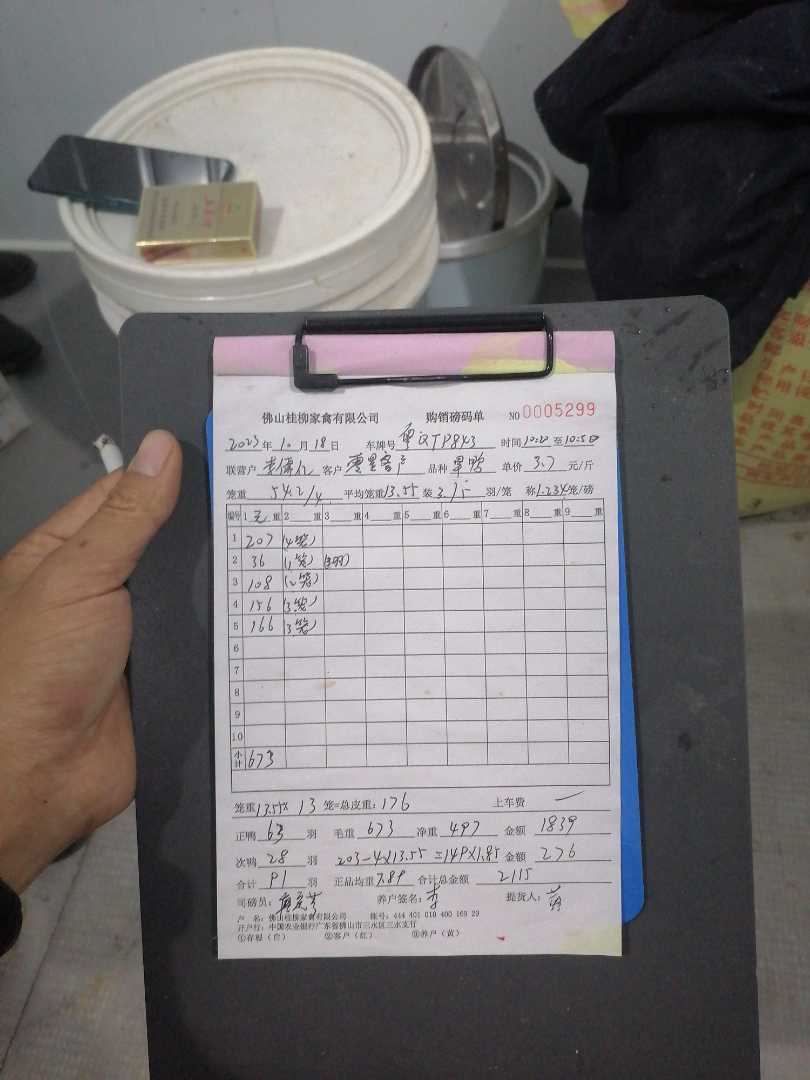 佛山桂柳家禽有限公司 购销磅码单 NO 0005299
2023年10月18日 车牌号 粤QTP843 时间10:20至10:50
联营户 客户 零星客户 品种 单价 3.7 元/斤
笼重 54.2/4 平均笼重13.55装3.75羽/笼 称1.234笼/磅
编号 1 毛 重 2 重 3 重 4 重 5 重 6 重 7 重 8 重 9 重
1 207 (4笼)
2 36 (1笼)
3 108 (2笼)
4 156 (3笼)
5 166 (3笼)
6
7
8
9
10
小计 673
笼重13.55× 13 笼=总皮重:176 上车费 一
正鸭 63 羽 毛重 673 净重 497 金额 1839
次鸭 28 羽 203-4×13.55=149×1.85 金额 276
合计 91 羽 正品均重7.89 合计总金额 2115
司磅员: 养户签名:李 提货人:
户 名:佛山桂柳家禽有限公司 账号:444 401 010 400 169 29
开户行:中国农业银行广东省佛山市三水区三水支行
①存根(白) ②客户(红) ③养户(黄)